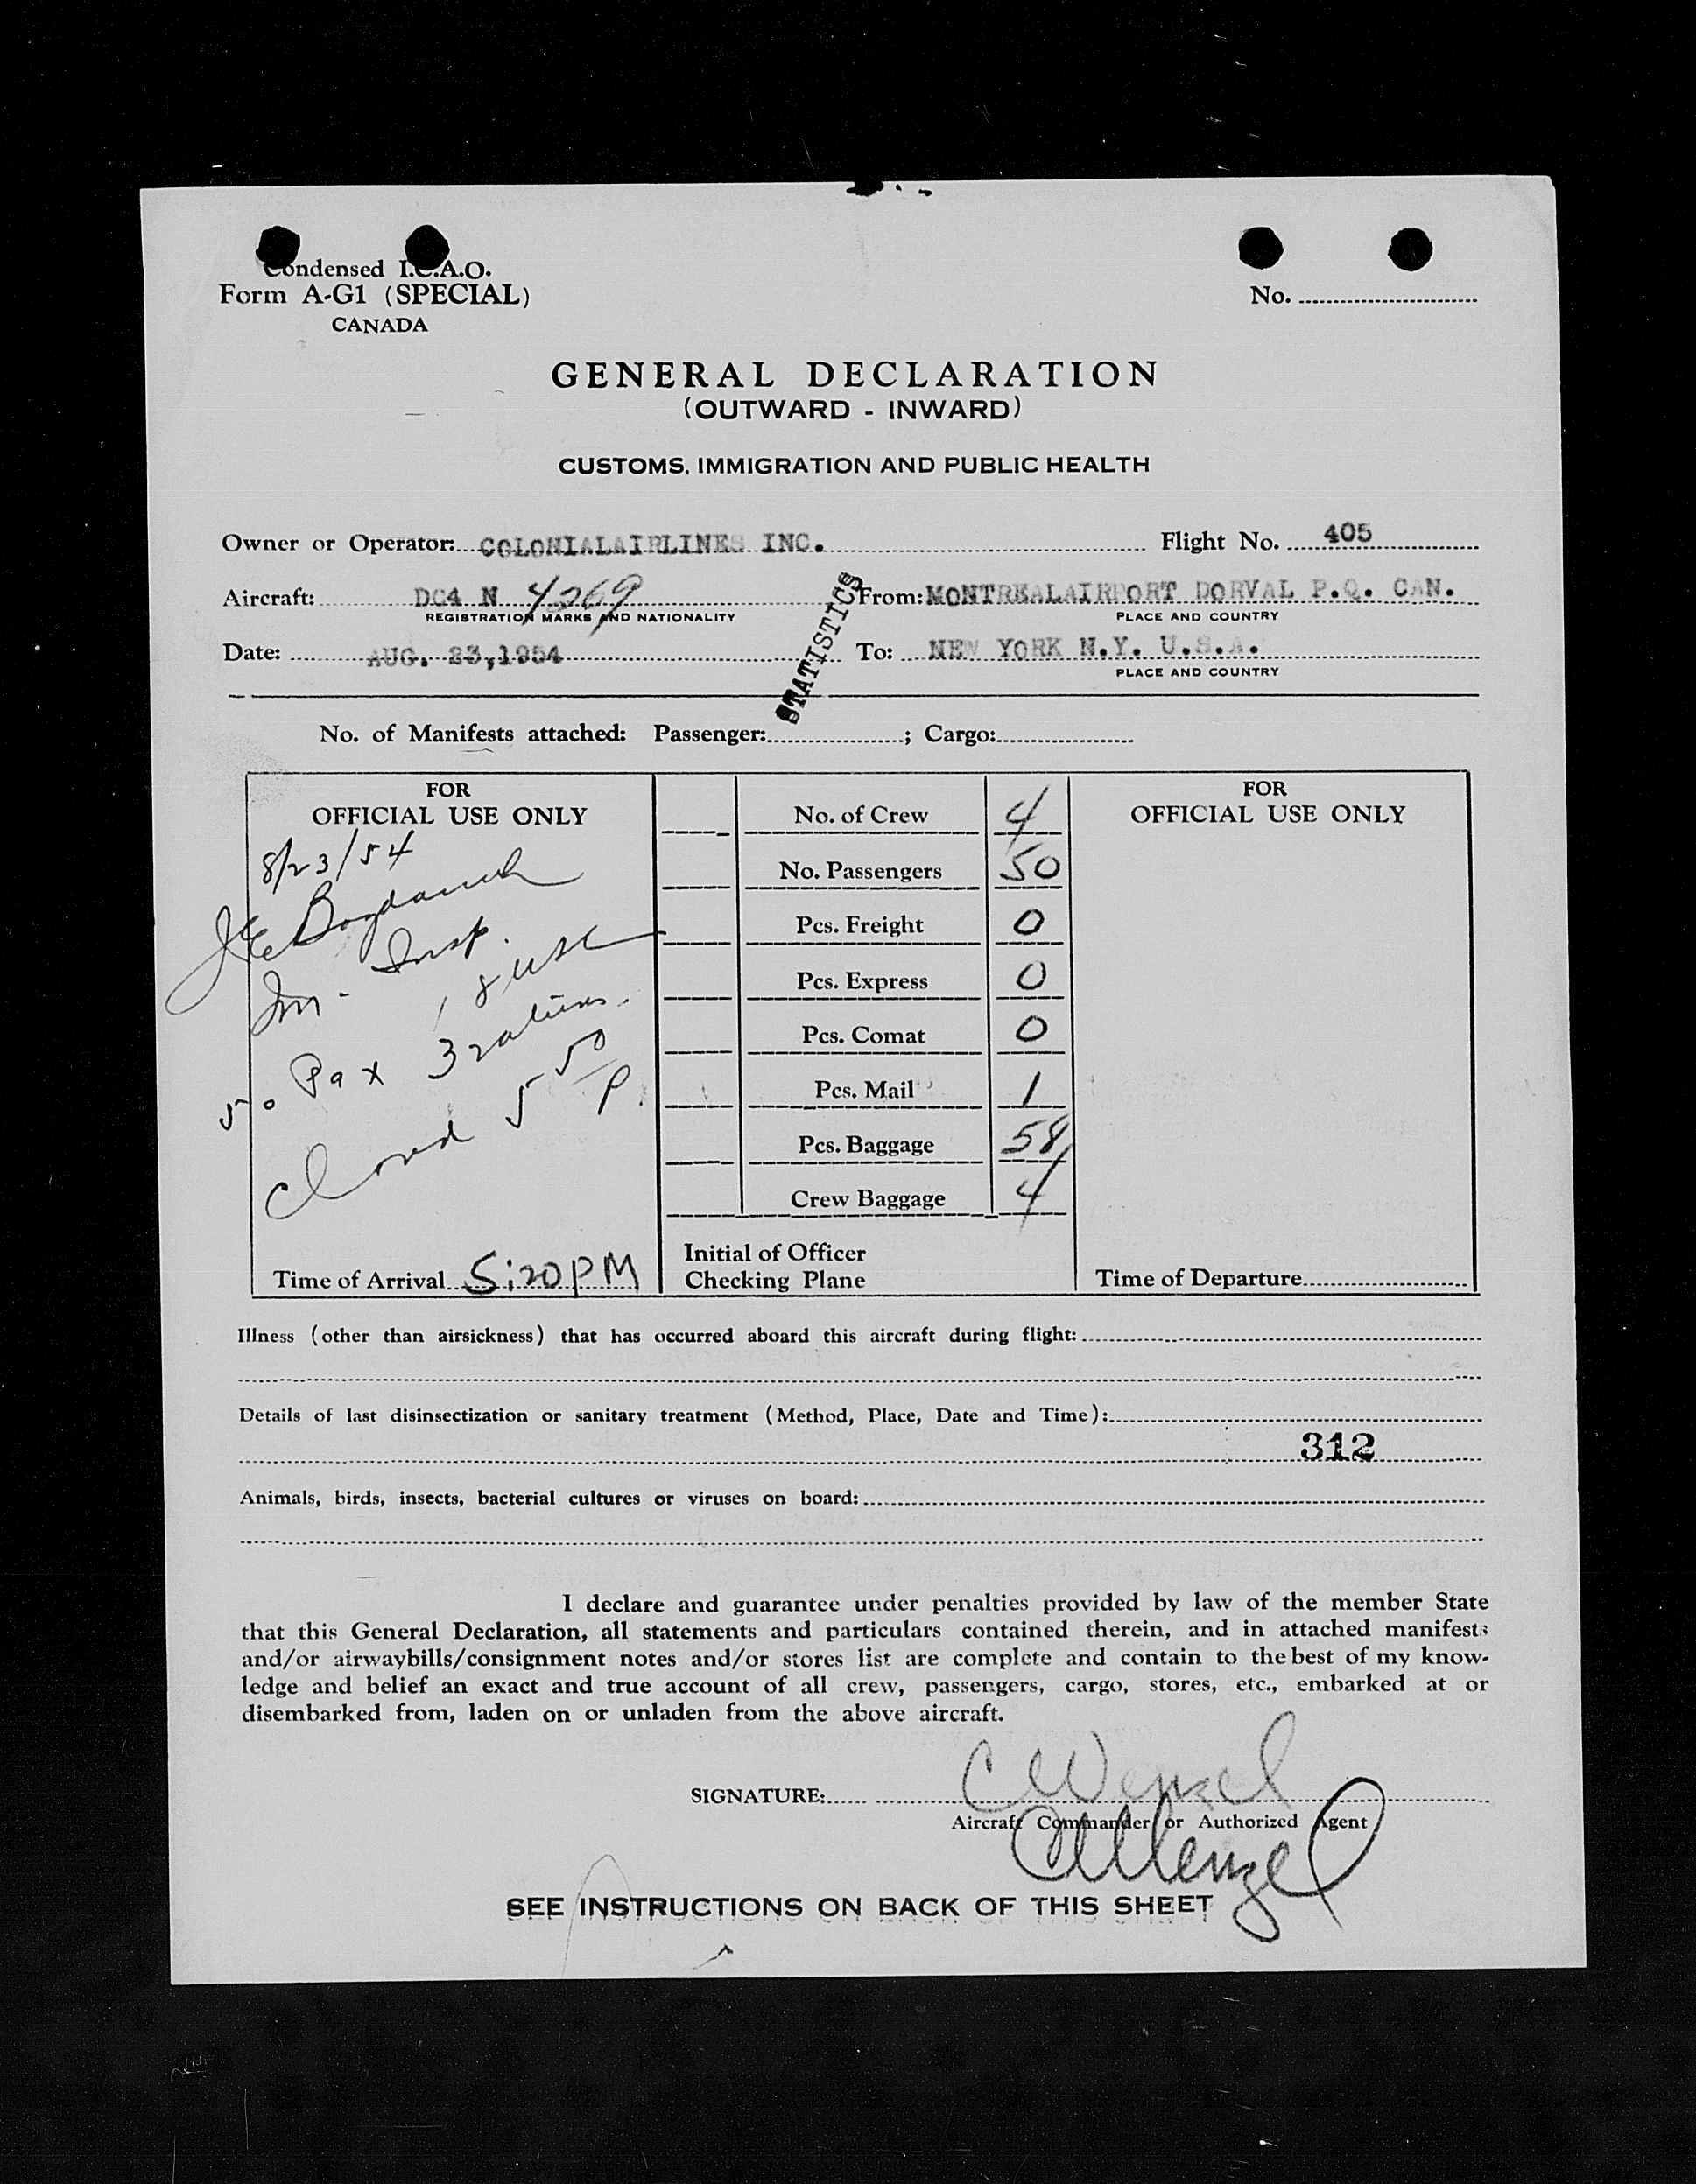 Condensed I.C.A.O.
Form A-G1 (SPECIAL)
CANADA
No.
GENERAL DECLARATION
(OUTWARD - INWARD)
CUSTOMS, IMMIGRATION AND PUBLIC HEALTH
Owner or Operator: COLONIALAIRLINES INC. Flight No. 405
Aircraft: DC4 N 4269 From: MONTREALAIRPORT DORVAL P.Q. CAN.
REGISTRATION MARKS AND NATIONALITY PLACE AND COUNTRY
STATISTICS
Date: AUG. 23,1954 To: NEW YORK N.Y. U.S.A.
PLACE AND COUNTRY
No. of Manifests attached: Passenger: ; Cargo:
FOR
OFFICIAL USE ONLY
8/23/54
Insp.
50 Pax
5 50 P.
Time of Arrival 5:20PM
No. of Crew 4
No. Passengers 50
Pcs. Freight 0
Pcs. Express 0
Pcs. Comat 0
Pcs. Mail 1
Pcs. Baggage 58
Crew Baggage 4
Initial of Officer
Checking Plane
FOR
OFFICIAL USE ONLY
Time of Departure
Illness (other than airsickness) that has occurred aboard this aircraft during flight:
Details of last disinsectization or sanitary treatment (Method, Place, Date and Time):
312
Animals, birds, insects, bacterial cultures or viruses on board:
I declare and guarantee under penalties provided by law of the member State
that this General Declaration, all statements and particulars contained therein, and in attached manifests
and/or airwaybills/consignment notes and/or stores list are complete and contain to the best of my know-
ledge and belief an exact and true account of all crew, passengers, cargo, stores, etc., embarked at or
disembarked from, laden on or unladen from the above aircraft.
SIGNATURE:
Aircraft Commander or Authorized Agent
SEE INSTRUCTIONS ON BACK OF THIS SHEET